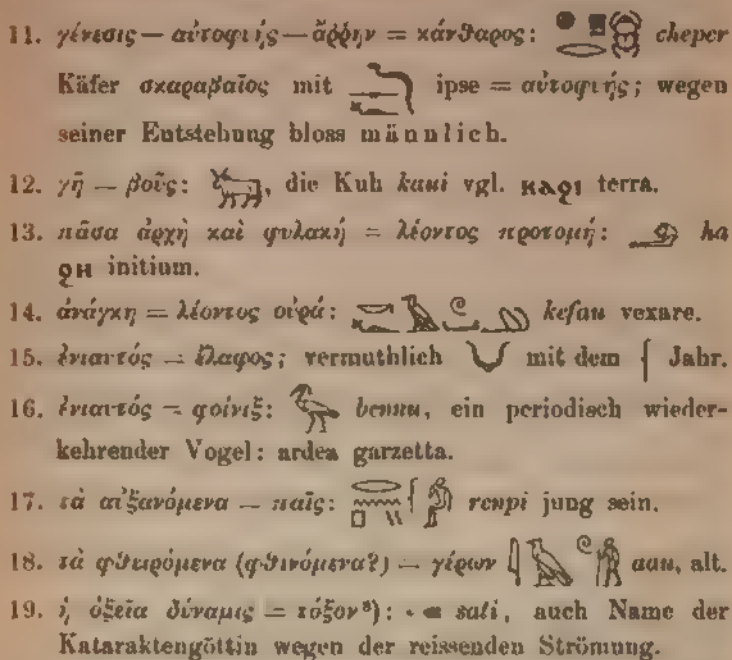 11. γένεσις — αὐτοφυής — ἄῤῥην = κάνθαρος: cheper
Käfer σκαραβαῖος mit ipse = αὐτοφυής; wegen
seiner Entstehung bloss männlich.
12. γῆ — βοῦς: , die Kuh kaui vgl. ⲕⲁϩⲓ terra.
13. πᾶσα ἀρχὴ καὶ φυλακή = λέοντος προτομή: ha
ϩⲏ initium.
14. ἀνάγκη = λέοντος οὐρά: kefau vexare.
15. ἐνιαυτός = ἔλαφος; vermuthlich mit dem Jahr.
16. ἐνιαυτός = φοίνιξ: bennu, ein periodisch wieder-
kehrender Vogel: ardea garzetta.
17. τὰ αὐξανόμενα — παῖς: renpi jung sein.
18. τὰ φθειρόμενα (φθινόμενα?) — γέρων aau, alt.
19. ἡ ὀξεῖα δύναμις = τόξον³): sati, auch Name der
Kataraktengöttin wegen der reissenden Strömung.